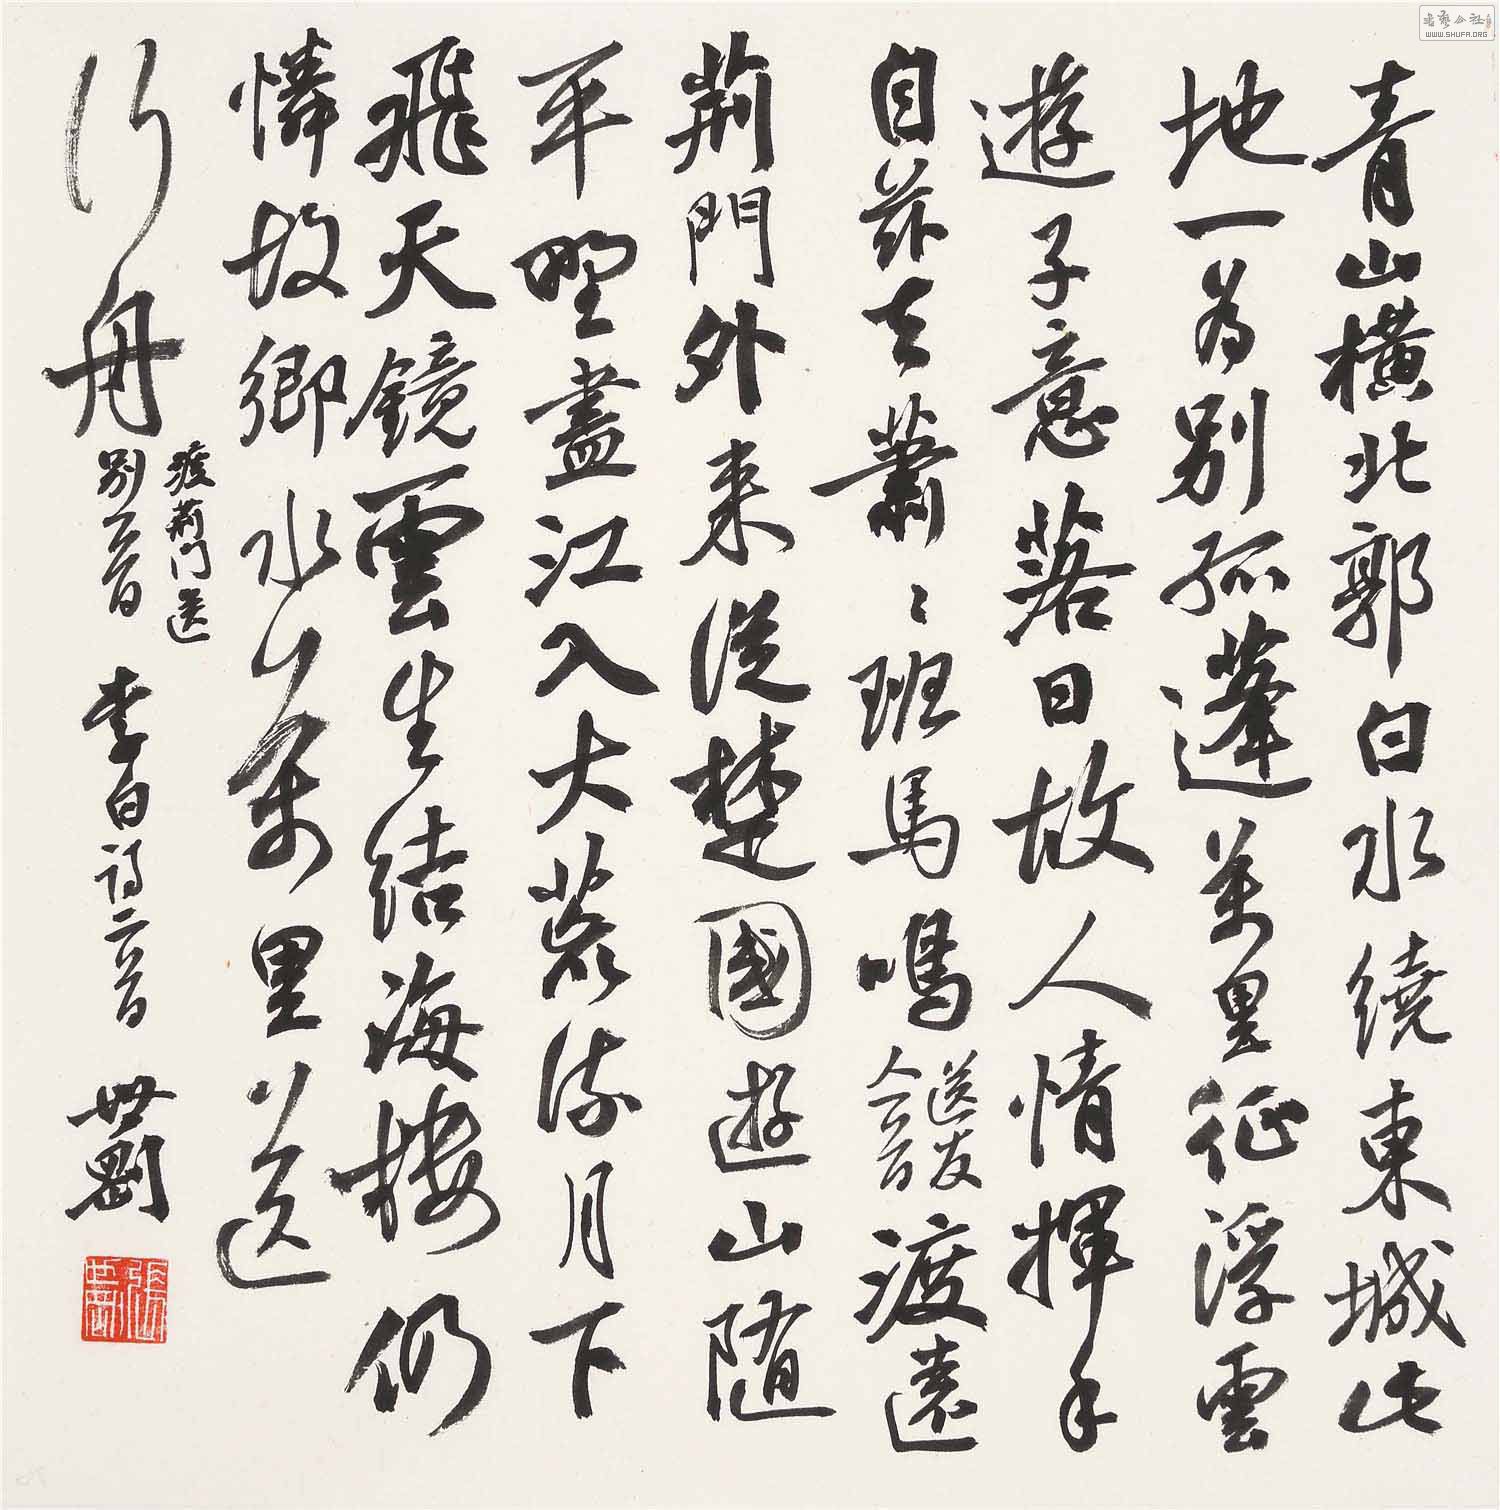 青山橫北郭白水繞東城此
地一为別孤蓬萬里征浮雲
遊子意落日故人情揮手
自茲去蕭〻班馬鳴
送友
人一首
渡遠
荊門外來從楚國遊山随
平野盡江入大荒流月下
飛天鏡雲生結海樓仍
憐故鄉水萬里送
行舟
渡荊门送
別一首
李白诗二首 世剛
張世剛
書藝公社
WWW.SHUFA.ORG